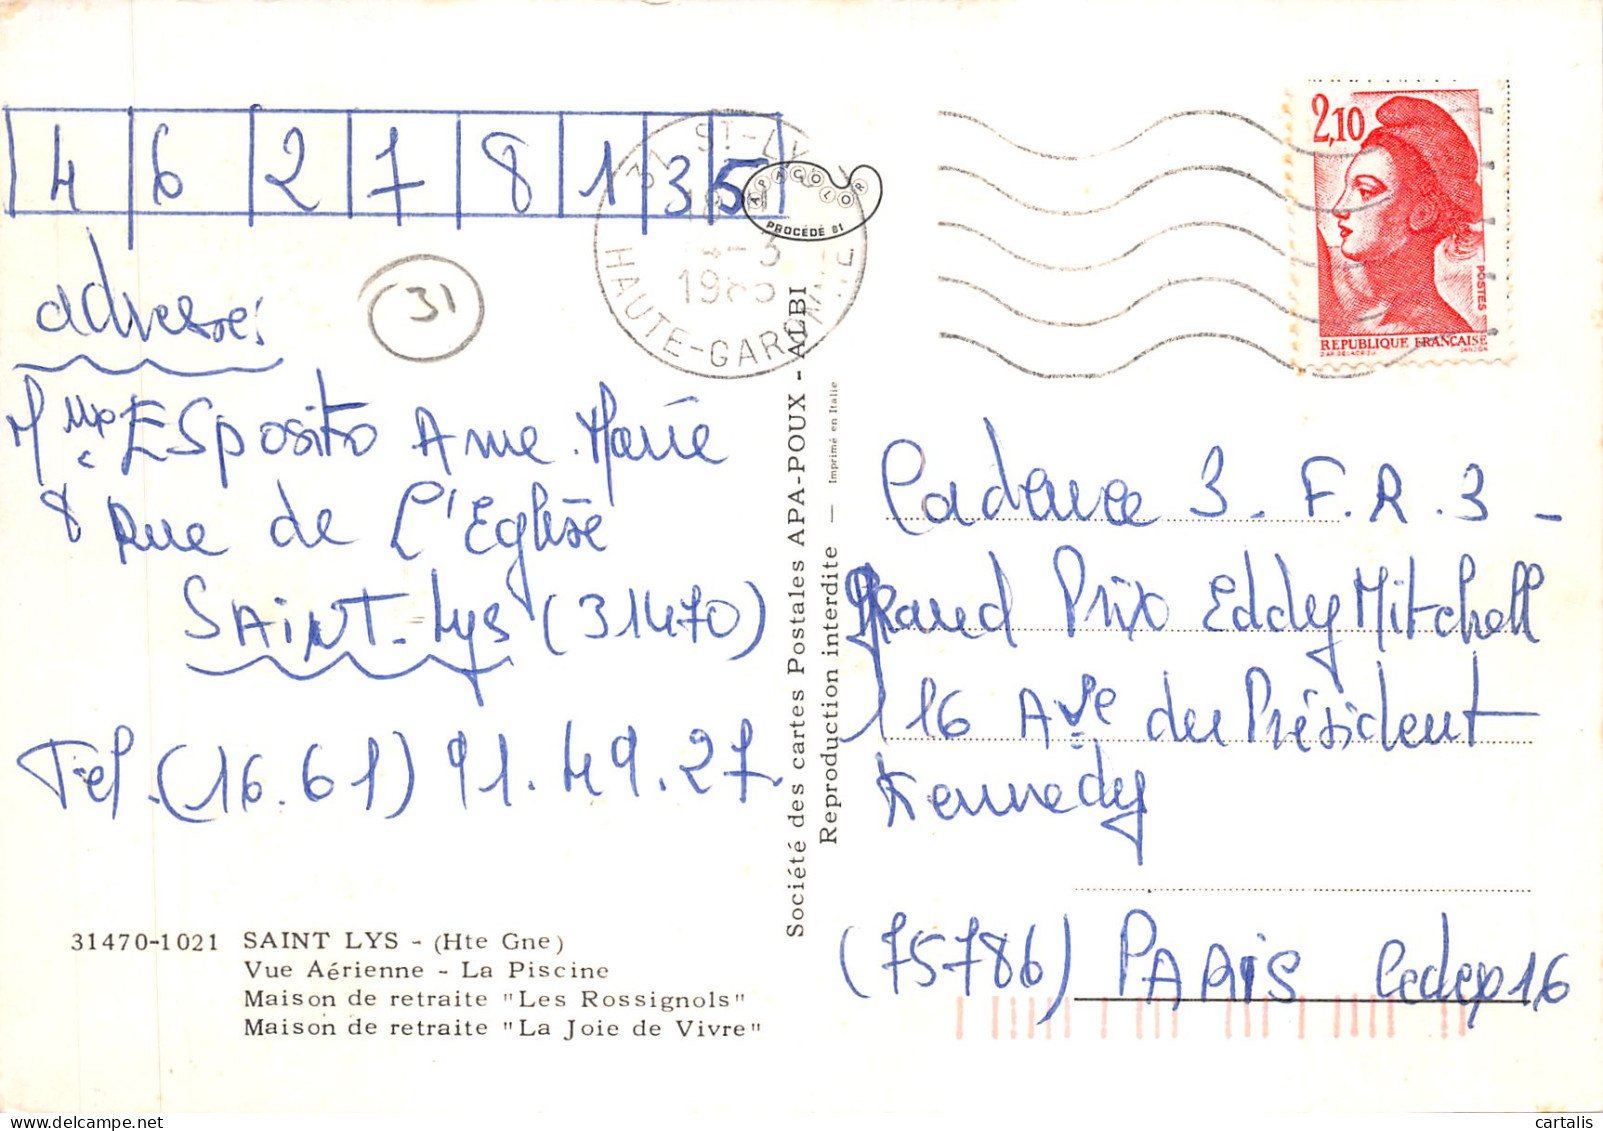 4 6 2 7 8 1 3 5
adresse:
Mme ESposito Anne.Marie
8 Rue de L'Eglise
SAINT-Lys (31470)
Tel.(16.61) 91.49.27
31
31 ST-LYS
4-3
HAUTE-GARONNE
APACOLOR
PROCÉDÉ 81
2,10
POSTES
REPUBLIQUE FRANÇAISE
Cadence 3 - F.R.3 -
Grand Prix Eddy Mitchell
116 Ave du Président
Kennedy
(75786) PARIS Cedex 16
Société des cartes Postales APA-POUX - ALBI
Reproduction interdite — Imprimé en Italie
31470-1021 SAINT LYS - (Hte Gne)
Vue Aérienne - La Piscine
Maison de retraite "Les Rossignols"
Maison de retraite "La Joie de Vivre"
cartalis